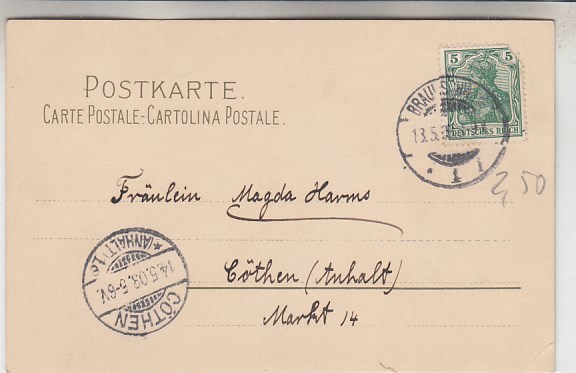 POSTKARTE.
CARTE POSTALE-CARTOLINA POSTALE.
5 5
DEUTSCHES REICH
13.5.
1 i
2,50
Fräulein Magda Harms
Cöthen (Anhalt)
Markt 14
*(ANHALT) 1c
14.5.03. 5-6 V.
CÖTHEN